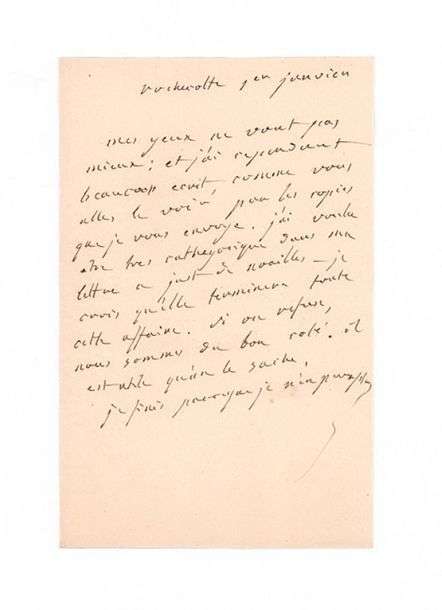 rochecotte 1er janvier
mes yeux ne vont pas
mieux; et j'ai cependant
beaucoup ecrit, comme vous
allez le voir, par les copies
que je vous envoye. j'ai voulu
etre tres cathegorique dans ma
lettre a just de noailles - je
crois qu'elle terminera toute
cette affaire. si on refuse,
nous sommes du bon coté. il
est utile qu'on le sache.
je finis parceque je n'en puis plus